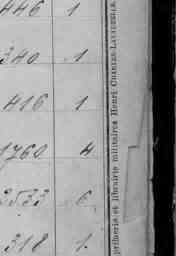 446 1
340 1
416 1
1760 4
2533 6
318 1.
primerie et librairie militaires Henri CHARLES-LAVAUZELLE.